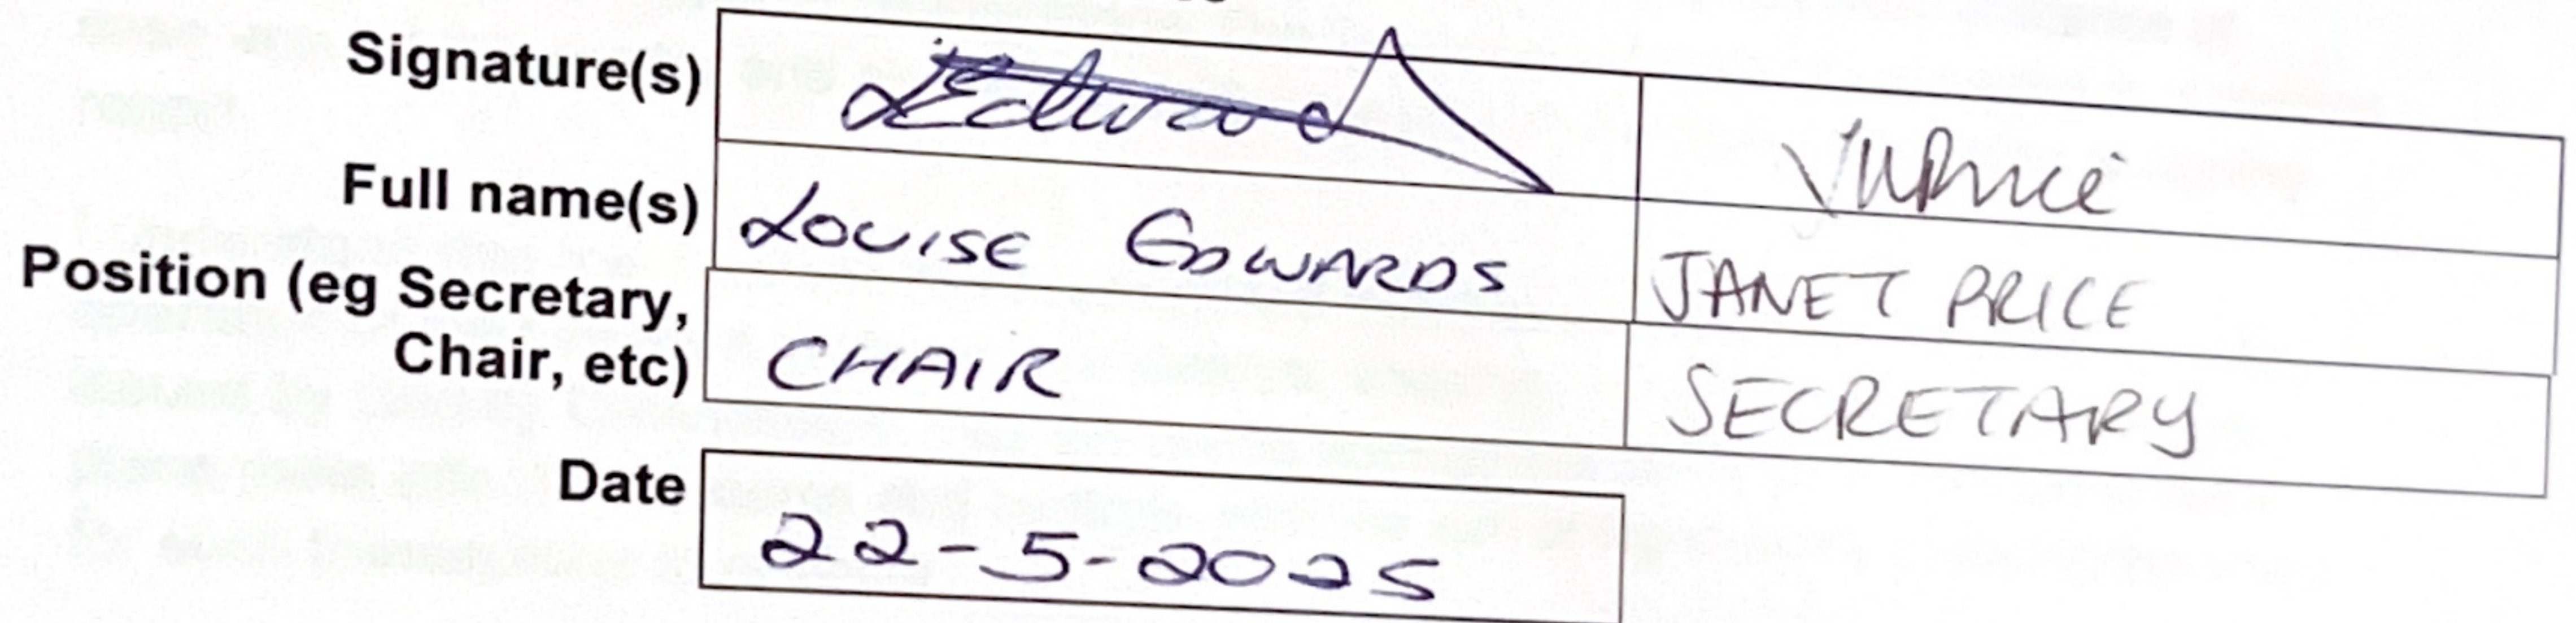 Signature(s)
Full name(s) LOUISE EDWARDS JANET PRICE
Position (eg Secretary,
Chair, etc) CHAIR SECRETARY
Date 22-5-2025